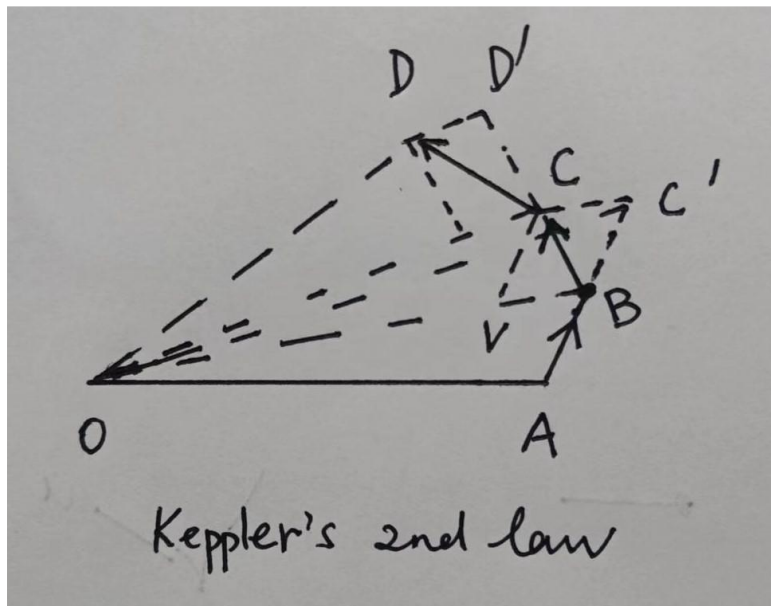 D D'
C C'
V B
O A
Keppler's 2nd law